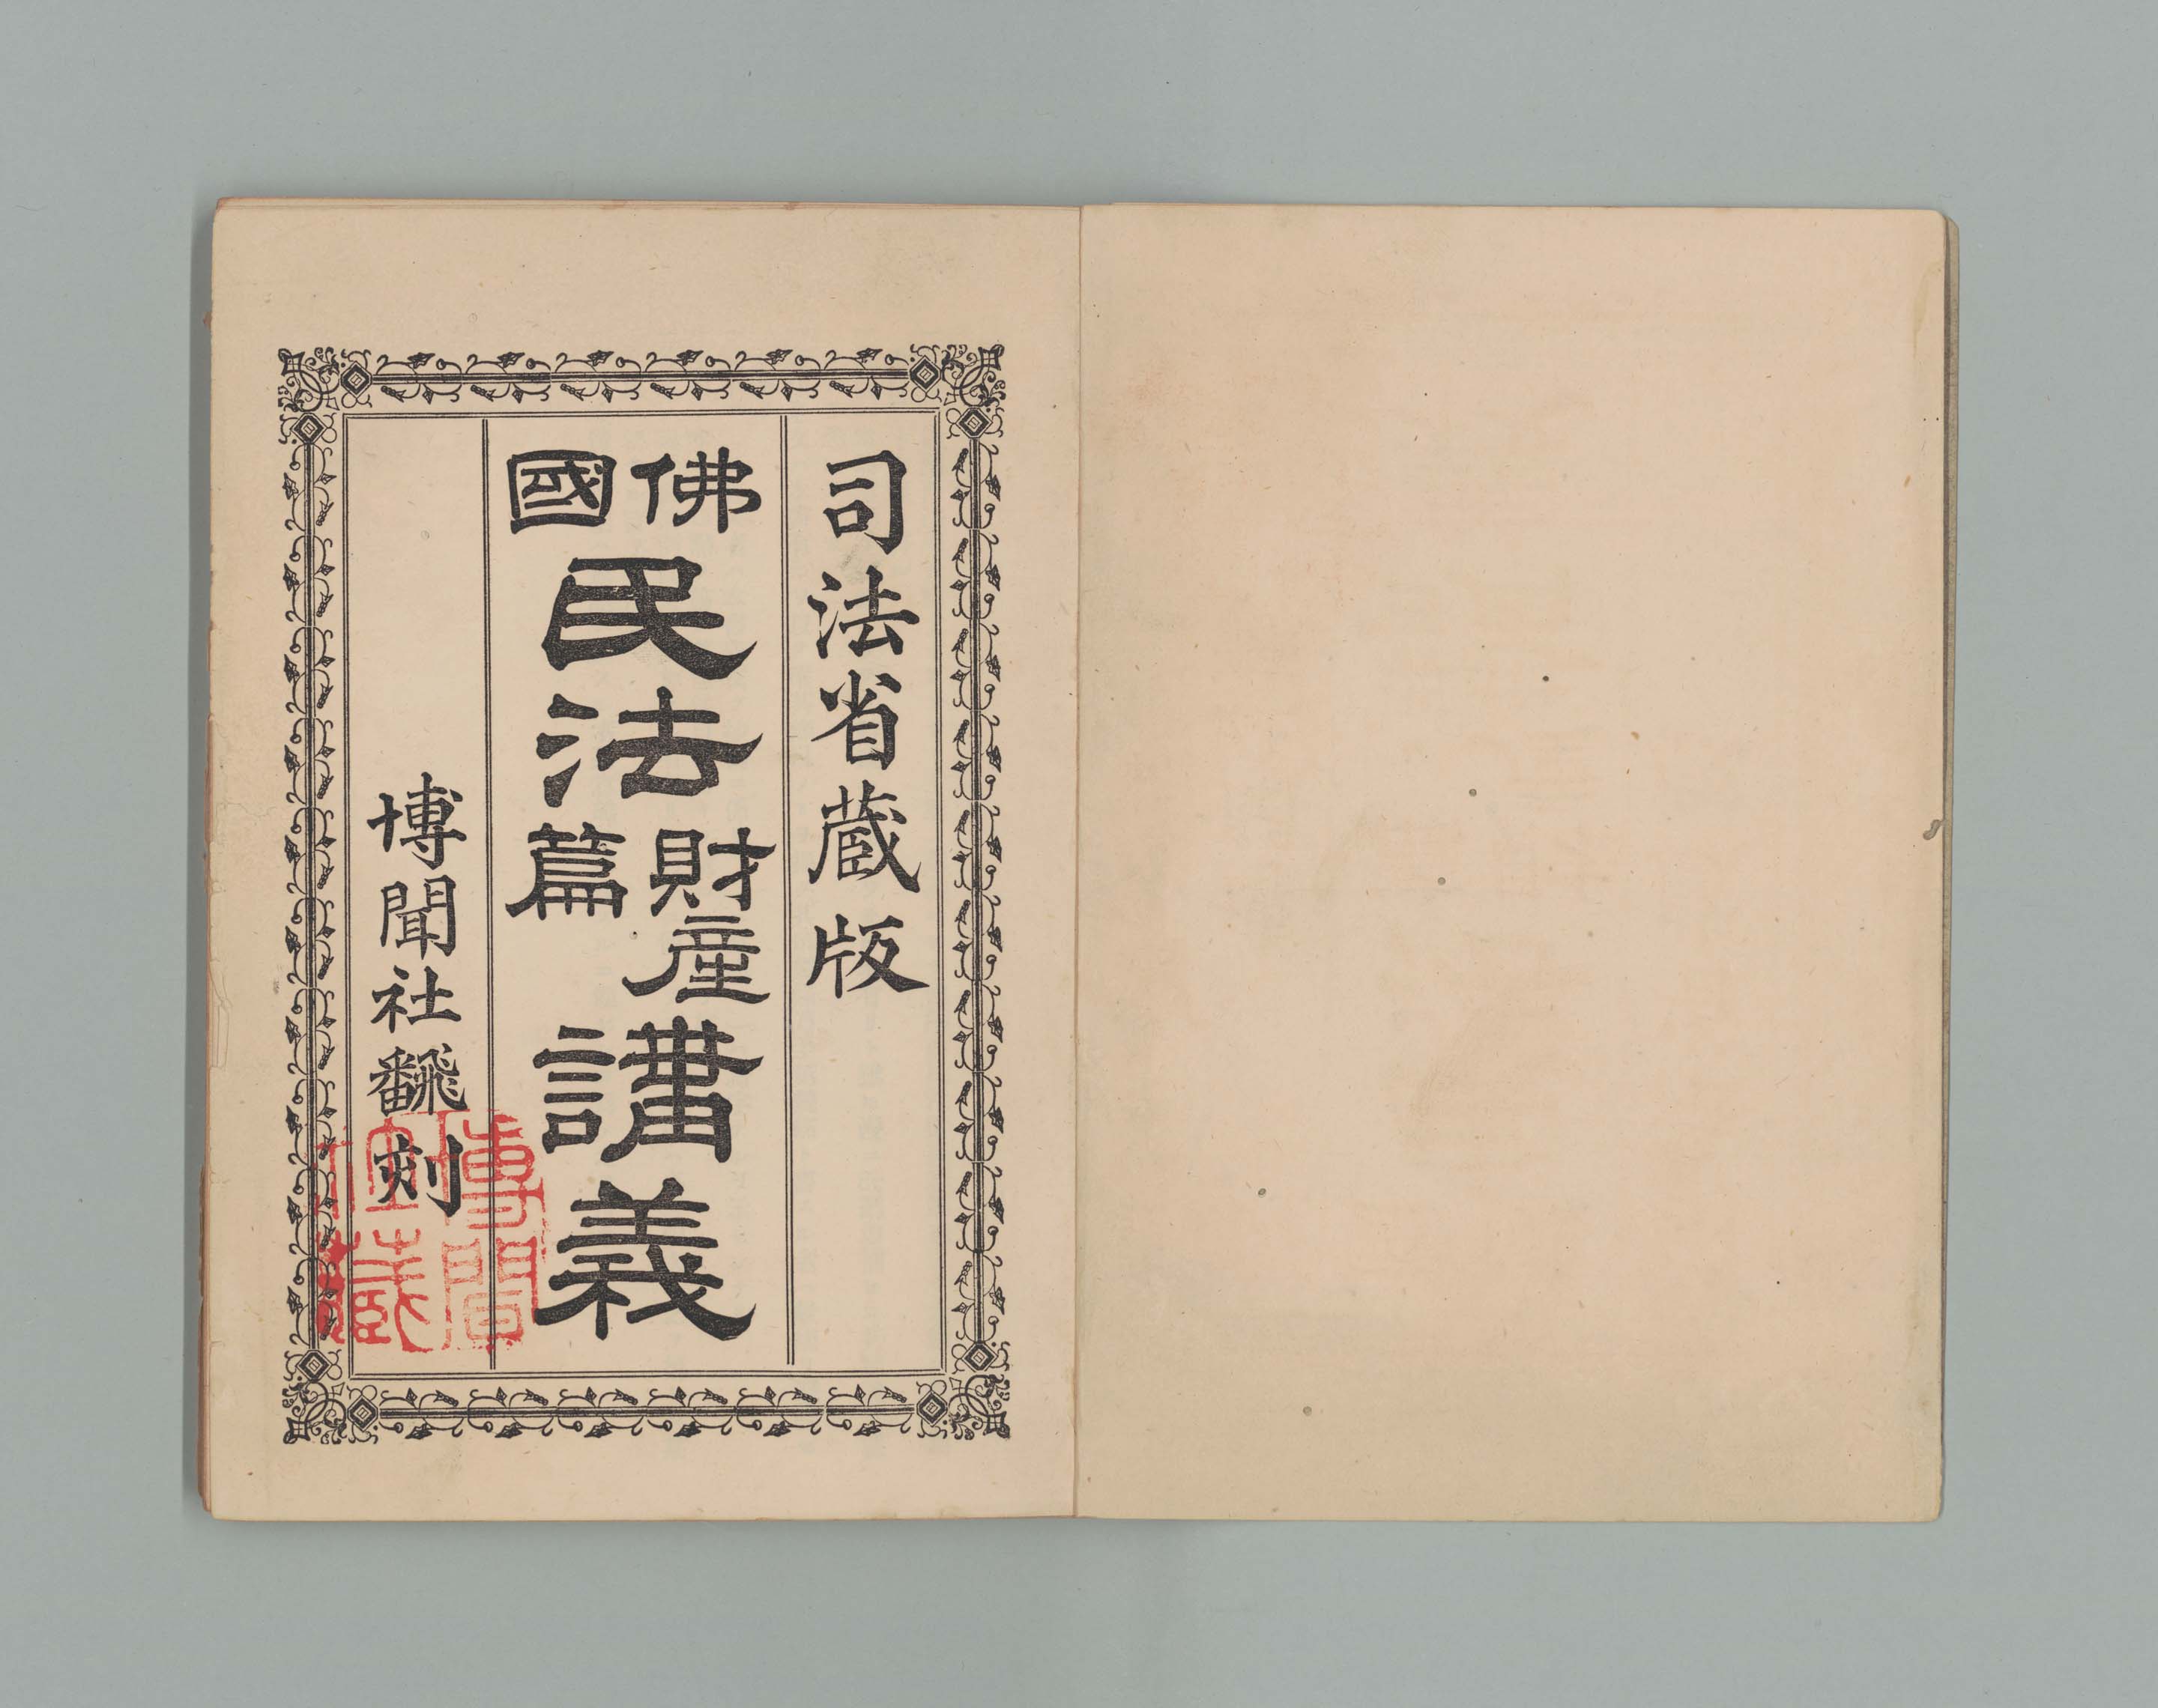 司法省蔵版
佛國民法財産篇講義
博聞社飜刻
博聞
藏